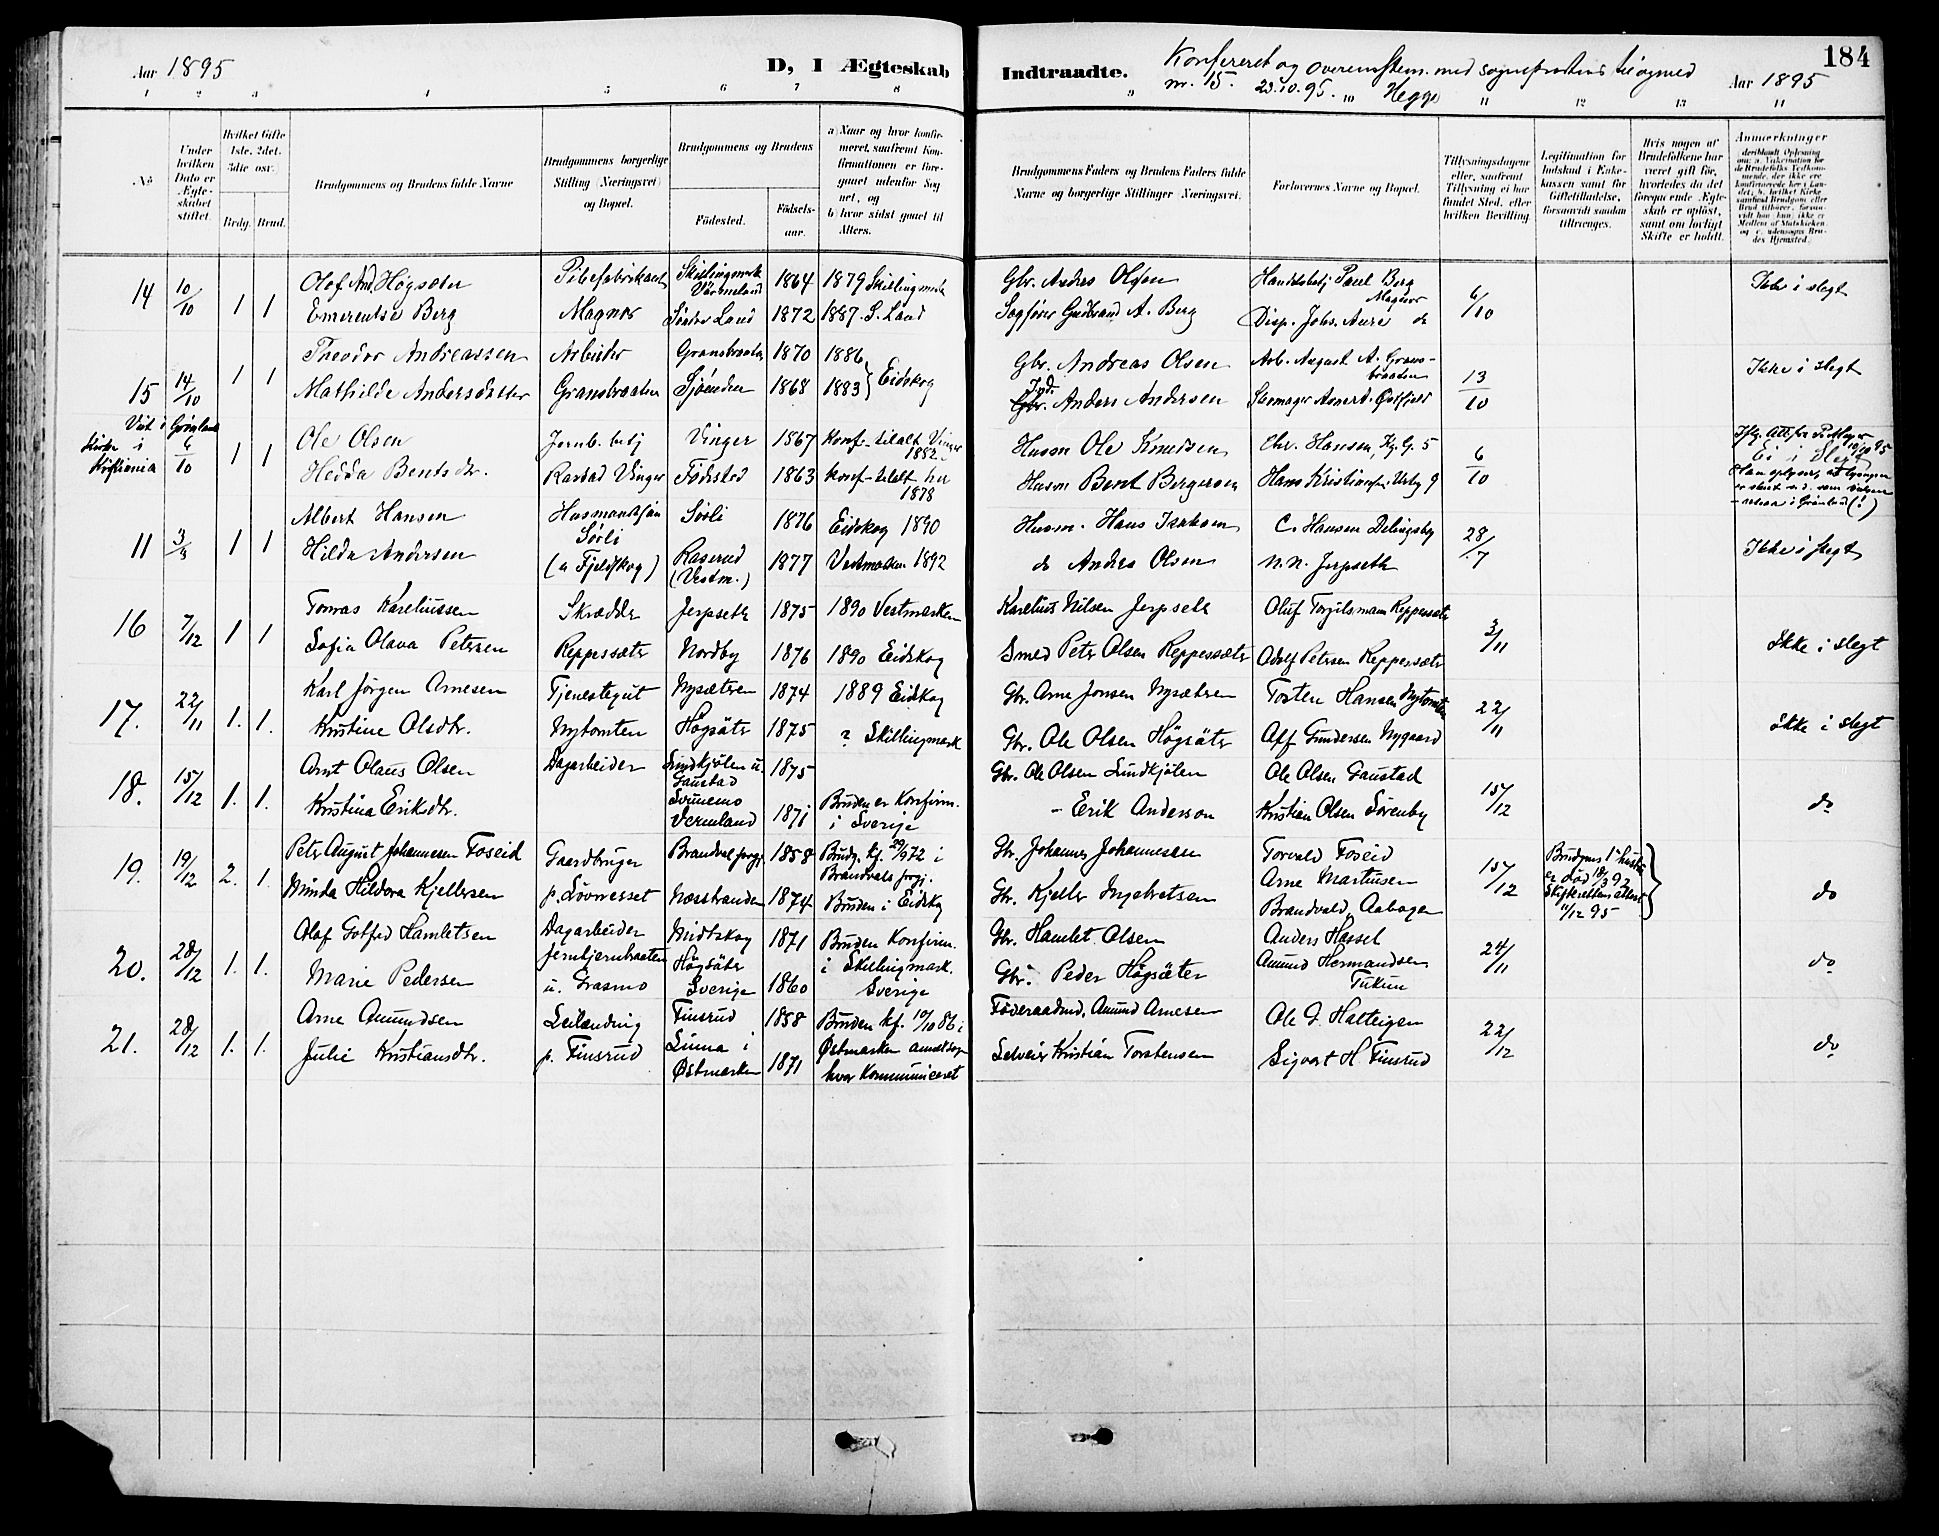 184
Aar 1895
D, I Ægteskab
Indtraadte.
Konfereret og overensstem. med sogneprestens til og med
nr. 15. 23.10.95. Hegge
Aar 1895
1 2 3 4 5 6 7 8
9 10 11 12 13 14
No
Under hvilken Dato er Ægteskabet stiftet.
Hvilket Gifte 1ste. 2det. 3dte osv.
Brdg. Brud.
Brudgommens og Brudens fulde Navne
Brudgommens borgerlige Stilling (Næringsvei) og Bopæl.
Brudgommens og Brudens
Fødested.
Fødsels-aar.
a) Naar og hvor konfirmeret, saafremt Konfirmationen er foregaaet udenfor Sognet, og
b) hvor sidst gaaet til Alters.
Brudgommens Faders og Brudens Faders fulde Navne og borgerlige Stillinger (Næringsvei).
Forlovernes Navne og Bopæl.
Tillysningsdagene eller, saafremt Tillysning ei har fundet Sted, efter hvilken Bevilling.
Legitimation for Indskud i Enkekassen samt for Giftetilladelse, forsaavidt saadan tiltrænges.
Hvis nogen af Brudefolkene har været gift før, hvorledes da det foregaaende Ægteskab er opløst, samt om lovligt Skifte er holdt.
Anmerkninger
14 10/10 1 1
Olaf And. Høgsæter
Emerentse Berg
Pibefabrikant
Magnor
Skillingmark Värmeland 1864 1879 Skillingmark
Søndre Land 1872 1887. S. Land
Gbr. Andres Olsen
Sagfører Gudbrand A. Berg
Handelsbetj Paul Berg Magnor
Disp. Johs. Aure do
6/10
Ikke i slegt
15 14/10 1 1
Theodor Andreassen
Mathilde Andersdatter
Arbeider
Gransbraaten
Gransbraaten 1870 1886
Sjøenden 1868 1883 } Eidskog
Gbr. Andreas Olsen
Ind. Anders Andersen
Arb. August A. Gransbraaten
Skomager Asmert. Østfjeld
13/10
Ikke i slegt
Viet i Grønlands Kirke i Kristiania 6/10 1 1
Ole Olsen
Hedda Bentsdr.
Jernb. betj
Rastad Vinger
Vinger 1867 Konf. tilalt Vinger 1882
Fødested 1863 konf. tilalt her 1878
Husm Ole Knudsen
Husm Bent Bergersen
Chr. Hansen Kg. G. 5
Hans Kristiansen Urtg 9
6/10
Ifg. Att. fra P. Mayer 10/10 95
Ei i Slegt
11 3/8 1 1
Albert Hansen
Hilda Andersen
Husmandssøn Sørli
(a Fjeldskog)
Sørli 1876 Eidskog 1890
Raserud (Vestm.) 1877 Vestmarken 1892
Husm. Hans Isaksen
do Andres Olsen
C. Hansen Delingsby
N.N. Jerpseth
28/7
Ikke i slegt
16 7/12 1 1
Tomas Kareliussen
Sofia Olava Petersen
Skrædder
Reppesæter
Jerpseth 1875 1890 Vestmarken
Nordby 1876 1890 Eidskog
Karelius Nilsen Jerpseth
Smed Peter Olsen Reppesæter
Oluf Torgilsmann Reppesæter
Adolf Petersen Reppesæter
3/11
Ikke i slegt
17. 22/11 1. 1.
Karl Jørgen Arnesen
Kristine Olsdtr.
Tjenestegut
Nytomten
Nysæteren 1874 1889 Eidskog
Høgsäter 1875 ? Skillingmark
Gbr. Arne Jonsen Nysæteren
Gbr. Ole Olsen Högsäter
Torsten Hansen Nytomten
Alf Gundersen Nygaard
22/11
ikke i slegt
18. 15/12 1. 1.
Arnt Olaus Olsen
Kristina Eriksdtr.
Dagarbeider
Lindkjölen u. Gaustad 1875
Svinemo Vermland 1871 Bruden er Konfirm. i Sverige
Gbr. Ole Olsen Lindkjölen
- Erik Anderson
Ole Olsen Gaustad
Kristian Olsen Sørenby
15/12
do
19. 19/12 2. 1.
Peter August Johannesen Foseid
Minda Hildora Kjellersen
Gaardbruger
p. Lövnesset
Brandval prgj. 1858 Brudg. kf. 29/9 72 i Brandvals prgj.
Næsstranden 1874 Bruden i Eidskog
Gbr. Johannes Johannesen
Gbr. Kjeller Ingebretsen
Torvald Foseid
Arne Martinsen
Brandvald, Aabogen
15/12
Brudgms 1ste hustru er död 18/3 92 Skifterettens attest 11/12 95
do
20. 28/12 1. 1.
Olaf Gotfred Hamletsen
Marie Pedersen
Dagarbeider
Jerntjernbraaten
u. Grasmo
Midtskog 1871 Bruden Konfirm.
Högsäter Sverige 1860 i Skillingmark. Sverige
Gbr. Hamlet Olsen
Gbr. Peder Högsäter
Anders Hassel
Amund Hermandsen Tukun
24/11
do
21. 28/12 1. 1.
Arne Amundsen
Julie Kristiansdtr.
Leilænding
p. Finsrud
Finsrud 1858 Bruden kf. 10/10 86 i
Linna i Østmarken 1871 Østmarken annekssogn hvor Kommuniceret
Föderaadmd. Amund Arnesen
Selveier Kristian Torstensen
Ole G. Halteigen
Sigvart H. Finsrud
22/12
do